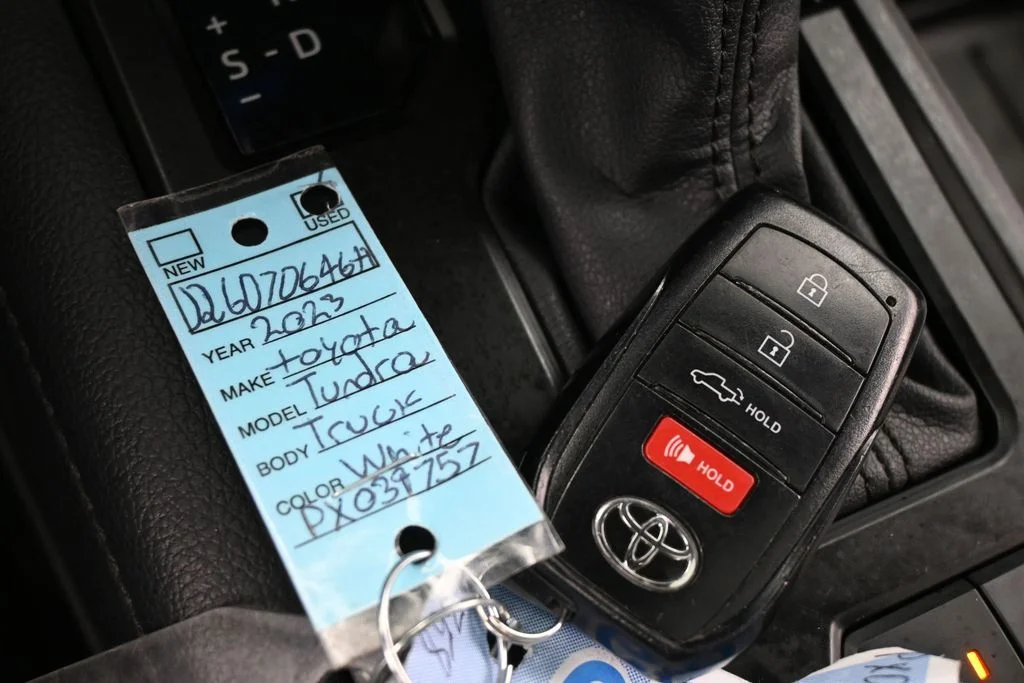 +
S - D
-
USED
NEW
D26070646A
YEAR 2023
MAKE toyota
MODEL Tundra
BODY Truck
COLOR White
PX039757
HOLD
HOLD